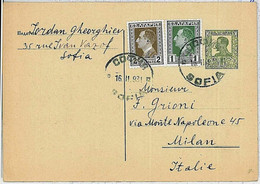 Jordan Gheorghiev
35 rue Ivan Vazof
Sofia
БЪЛГАРИЯ
2
БЪЛГАРИЯ
1
СОФИЯ
16.II.931
SOFIA
SOFIA
Monsieur
F. Grioni
via Monte Napoleone 45
Milan
Italie